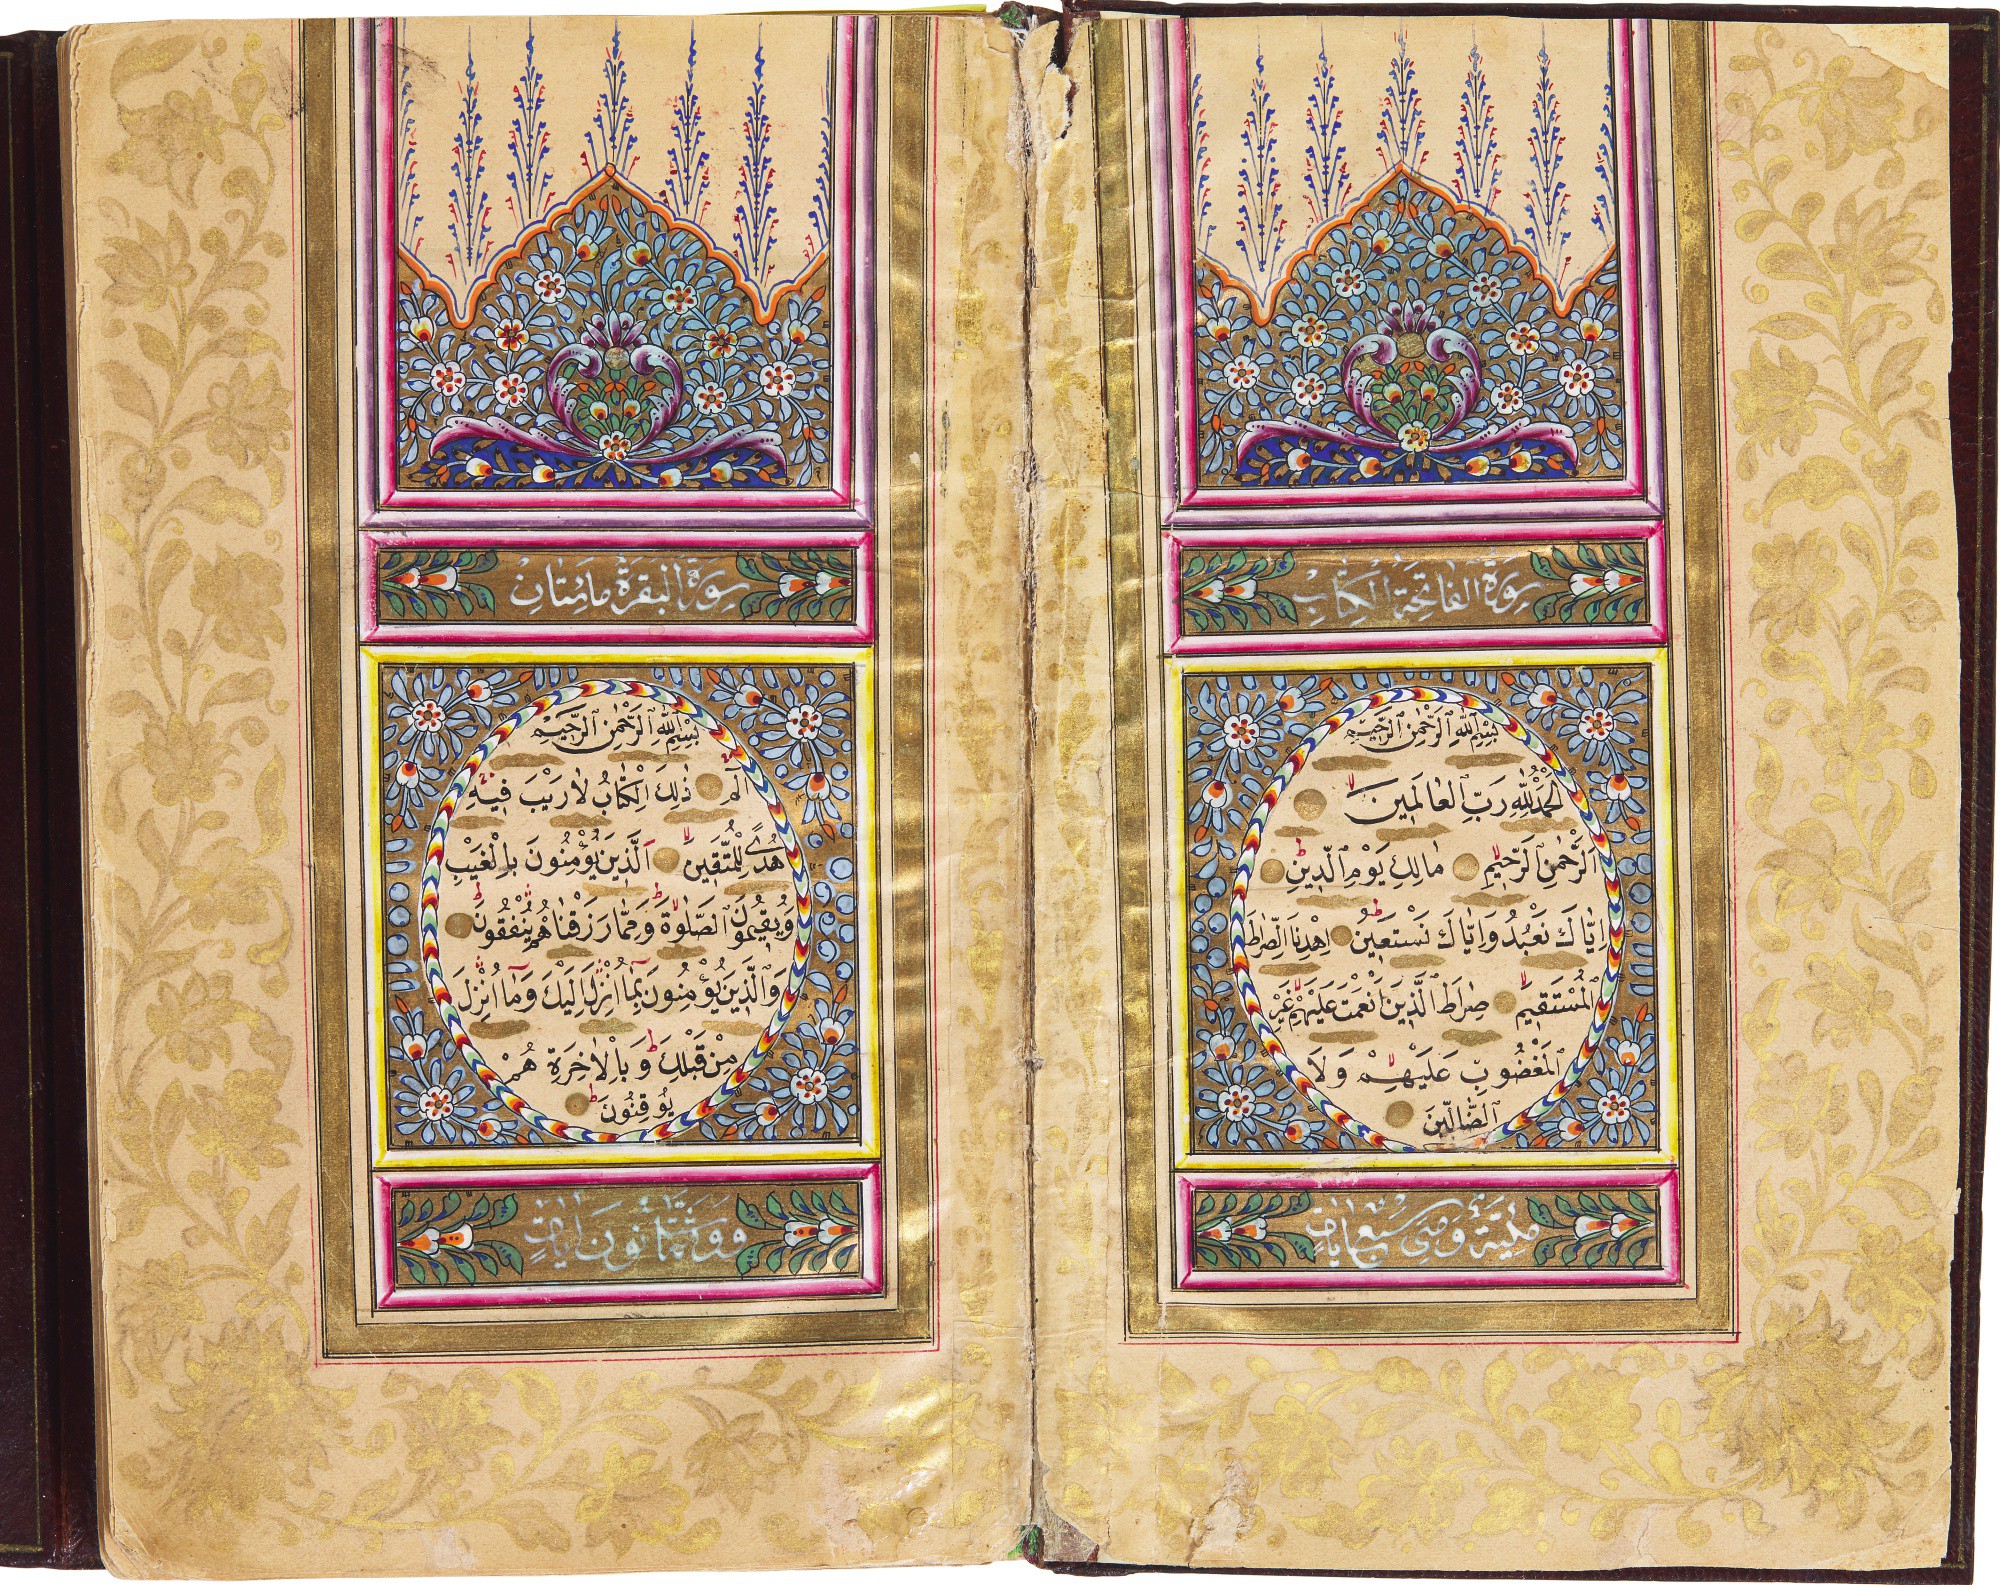 سورة الفاتحة الكتاب
بِسْمِ اللهِ الرَّحْمٰنِ الرَّحِيمِ
الحَمْدُ لِلّٰهِ رَبِّ الْعَالَمِينَ
اَلرَّحْمٰنِ الرَّحِيمِ مَالِكِ يَوْمِ الدِّينِ
اِيَّاكَ نَعْبُدُ وَاِيَّاكَ نَسْتَعِينُ اِهْدِنَا الصِّرَاطَ
الْمُسْتَقِيمَ صِرَاطَ الَّذِينَ اَنْعَمْتَ عَلَيْهِمْ غَيْرِ
الْمَغْضُوبِ عَلَيْهِمْ وَلَا
الضَّالِّينَ
مكية وهى سبع ايات
سورة البقرة مائتان
بِسْمِ اللهِ الرَّحْمٰنِ الرَّحِيمِ
الٓمٓ ذٰلِكَ الْكِتَابُ لَا رَيْبَ فِيهِ
هُدًى لِلْمُتَّقِينَ اَلَّذِينَ يُؤْمِنُونَ بِالْغَيْبِ
وَيُقِيمُونَ الصَّلٰوةَ وَمِمَّا رَزَقْنَاهُمْ يُنْفِقُونَ
وَالَّذِينَ يُؤْمِنُونَ بِمَا اُنْزِلَ اِلَيْكَ وَمَا اُنْزِلَ
مِنْ قَبْلِكَ وَبِالْاٰخِرَةِ هُمْ
يُوقِنُونَ
وثمانون ايات